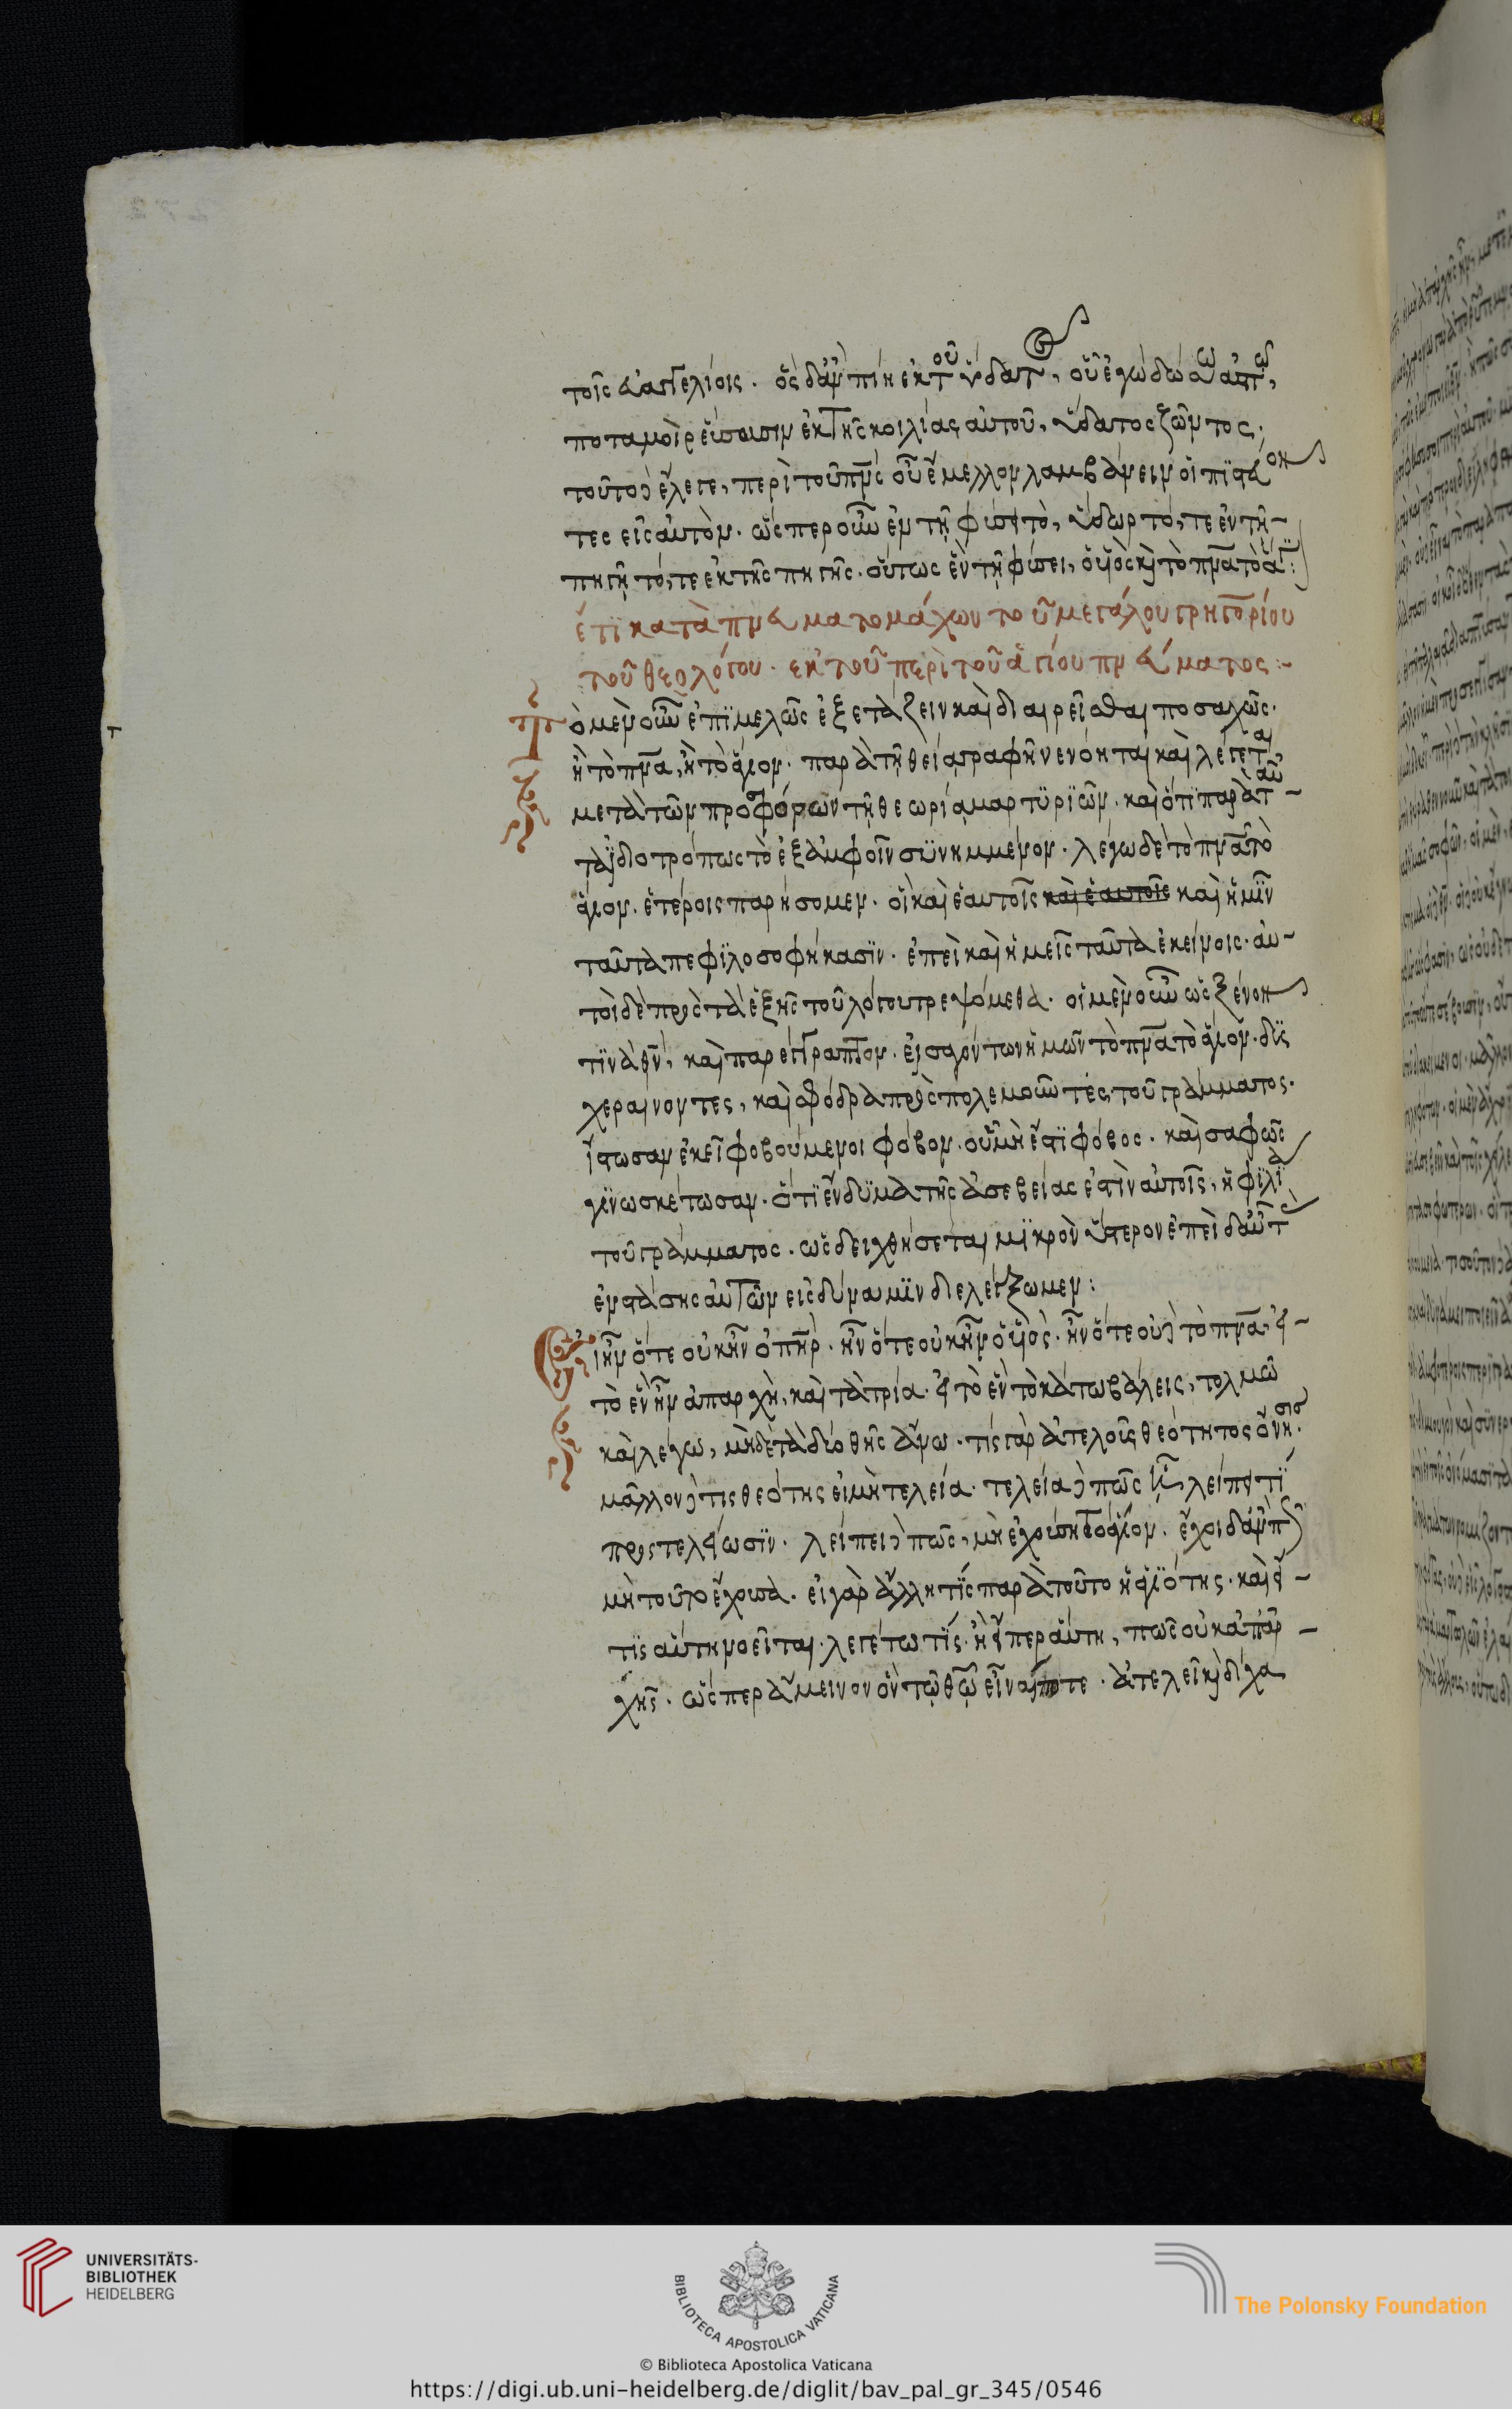 τοῖς εὐαγγελίοις. ὃς δ' ἂν πίη ἐκ τοῦ ὕδατος, οὗ ἐγὼ δώσω αὐτῷ,
ποταμοὶ ῥεύσουσιν ἐκ τῆς κοιλίας αὐτοῦ, ὕδατος ζῶντος.
τοῦτο δὲ ἔλεγε, περὶ τοῦ πνς οὗ ἔμελλον λαμβάνειν οἱ πιστεύον
τες εἰς αὐτόν. ὥσπερ οὖν ἐν τῇ φύσει τὸ, ὕδωρ τό, τε ἐν τῇ
πηγῇ τό, τε ἐκ τῆς πηγῆς. οὕτως ἓν τῇ φύσει, ὁ υἱὸς καὶ τὸ πνα τὸ ἅγιον:
ἔτι κατὰ πνευματομάχων τοῦ μεγάλου γρηγορίου
τοῦ θεολόγου. ἐκ τοῦ περὶ τοῦ ἁγίου πνεύματος:
τὸ μὲν οὖν ἐπιμελῶς ἐξετάζειν καὶ διαιρεῖσθαι ποσαχῶς.
ἢ τὸ πνα, ἢ τὸ ἅγιον. παρὰ τῇ θείᾳ γραφῇ νενόηται καὶ λέγεται
μετὰ τῶν προσφόρων τῇ θεωρίᾳ μαρτυριῶν. καὶ ὅτι παρὰ ταῦ
τα ἰδιοτρόπως τὸ ἐξ ἀμφοῖν συνημμένον. λέγω δὲ τὸ πνα τὸ
ἅγιον. ἑτέροις παρήσομεν. οἳ καὶ ἑαυτοῖς καὶ ἑαυτοῖς καὶ ἡμῖν
ταῦτα πεφιλοσοφήκασιν. ἐπεὶ καὶ ἡμεῖς ταῦτα ἐκείνοις. αὐ
τοὶ δὲ πρὸς τὰ ἑξῆς τοῦ λόγου τρεψόμεθα. οἱ μὲν οὖν ὡς ξένον
τινὰ θν, καὶ παρέγγραπτον. εἰσαγόντων ἡμῶν τὸ πνα τὸ ἅγιον. δυσ
χεραίνοντες, καὶ σφόδρα προσπολεμοῦντες τοῦ γράμματος.
ἴστωσαν ἐκεῖ φοβούμενοι φόβον. οὗ μὴ ἔστι φόβος. καὶ σαφῶς
γινωσκέτωσαν. ὅτι ἔνδυμα τῆς ἀσεβείας ἐστὶν αὐτοῖς, ἡ φιλία
τοῦ γράμματος. ὡς δειχθήσεται μικρὸν ὕστερον ἐπειδὰν τὰς
ἐνστάσης αὐτῶν εἰς δύναμιν διελέγξωμεν:
Εἰ ἦν ὅτε οὐκ ἦν ὁ πηρ. ἦν ὅτε οὐκ ἦν ὁ υἱός. ἦν ὅτε οὐδὲ τὸ πνα. εἰ
τὸ ἓν ἦν ἀπαρχὴ, καὶ τὰ τρία. εἰ τὸ ἓν τὸ κάτω βάλεις, τολμῶ
καὶ λέγω, μηδὲ τὰ δύο θῆς ἄνω. τίς γὰρ ἀτελοῦς θεότητος ὄνησις.
μᾶλλον δὲ τίς θεότης εἰ μὴ τελεία. τελεία δὲ πῶς ᾗ, λείπει τι
πρὸς τελείωσιν. λείπει δὲ πῶς, μὴ ἐχούσῃ τὸ ἅγιον. ἔχοι δ' ἂν πῶς
μὴ τοῦτο ἔχουσα. εἰ γὰρ ἄλλη τὶς παρὰ τοῦτο ἡ ἁγιότης. καὶ εἴ
τις αὕτη νοεῖται. λεγέτω τίς. ἢ εἴπερ αὕτη, πῶς οὐκ ἀπ' ἀρ
χῆς. ὥσπερ ἄμεινον ὂν τῷ θῷ εἶναί ποτε. ἀτελεῖ καὶ δίχα
UNIVERSITÄTS-
BIBLIOTHEK
HEIDELBERG
BIBLIOTECA APOSTOLICA VATICANA
The Polonsky Foundation
© Biblioteca Apostolica Vaticana
https://digi.ub.uni-heidelberg.de/diglit/bav_pal_gr_345/0546